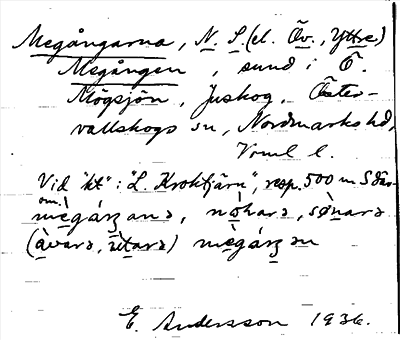 Megångarna, N. S. (el. Öv., Yttre)
Megången, sund i Ö.
Mögsjön, Juskog, Öster-
vallskogs sn, Nordmarks hd,
Vrml l.
Vid "kt" : "L. Kroktjärn", resp. 500 m S där-
om.
mègárʒana, nòhara, sønara
(àvara, ỳtara) mègárʒan
E. Andersson 1936.